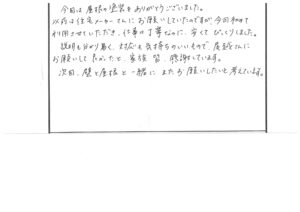 今回は屋根の塗装をありがとうございました。
以前は住宅メーカーさんにお願いしていたのですが、今回初めて
利用させていただき、仕事は丁寧なのに、安くてびっくりしました。
説明も分かり易く、対応も気持ちのいいもので、尾越さんに
お願いして良かったと、家族一同、感謝しています。
次回、壁と屋根と一緒に またお願いしたいと考えています。